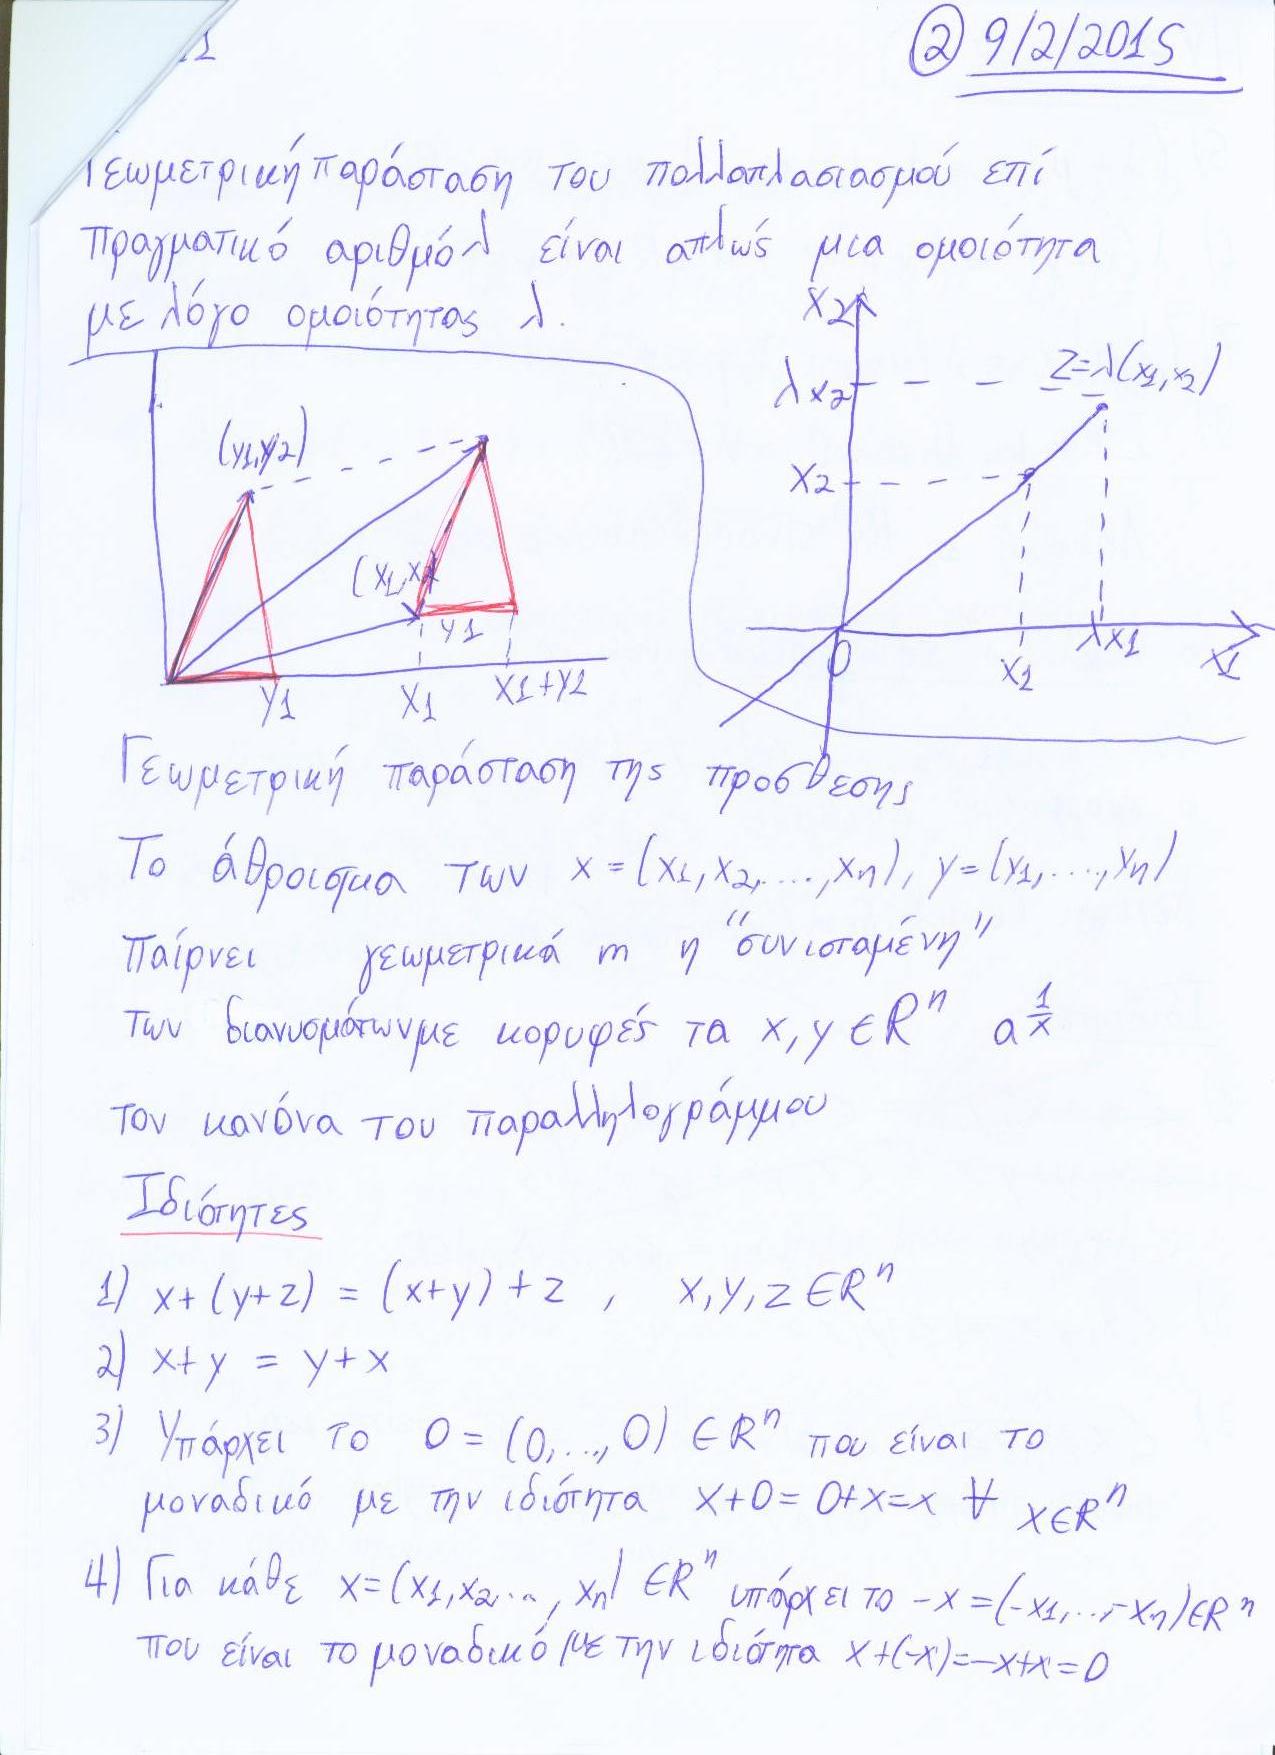 ② 9/2/2015
Γεωμετρική παράσταση του πολλαπλασιασμού επί
πραγματικό αριθμό λ είναι απλώς μια ομοιότητα
με λόγο ομοιότητας λ.
x2
λx2
z=λ(x1,x2)
x2
0
x1
λx1
x1
(y1,y2)
(x1,x2)
y1
y1
x1
x1+y1
Γεωμετρική παράσταση της πρόσθεσης
Το άθροισμα των x=(x1,x2,...,xn), y=(y1,...,yn)
παίρνει γεωμετρικά m η "συνισταμένη"
των διανυσμάτων με κορυφές τα x,y∈ℝⁿ a^{1/x}
τον κανόνα του παραλληλογράμμου
Ιδιότητες
1) x+(y+z) = (x+y)+z , x,y,z∈ℝⁿ
2) x+y = y+x
3) Υπάρχει το 0=(0,...,0) ∈ℝⁿ που είναι το
μοναδικό με την ιδιότητα x+0=0+x=x ∀ x∈ℝⁿ
4) Για κάθε x=(x1,x2...,xn) ∈ℝⁿ υπάρχει το -x=(-x1,...,-xn)∈ℝⁿ
που είναι το μοναδικό με την ιδιότητα x+(-x)=-x+x=0